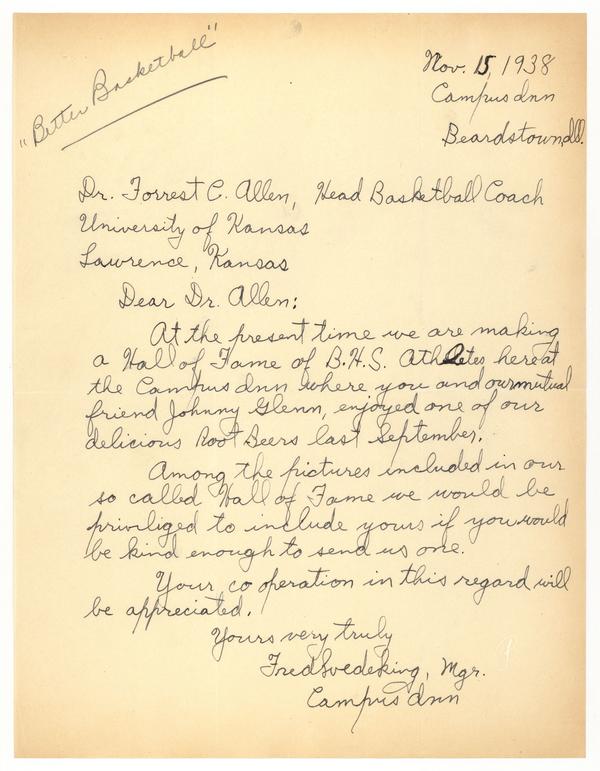 "Better Basketball"
Nov. 15, 1938
Campus Inn
Beardstown, Ill.
Dr. Forrest C. Allen, Head Basketball Coach
University of Kansas
Lawrence, Kansas
Dear Dr. Allen:
At the present time we are making
a Hall of Fame of B.H.S. Athletes here at
the Campus Inn where you and our mutual
friend Johnny Glenn, enjoyed one of our
delicious Root Beers last September.
Among the pictures included in our
so called Hall of Fame we would be
priviliged to include yours if you would
be kind enough to send us one.
Your co operation in this regard will
be appreciated.
Yours very truly
Fred Suedeking, Mgr.
Campus Inn